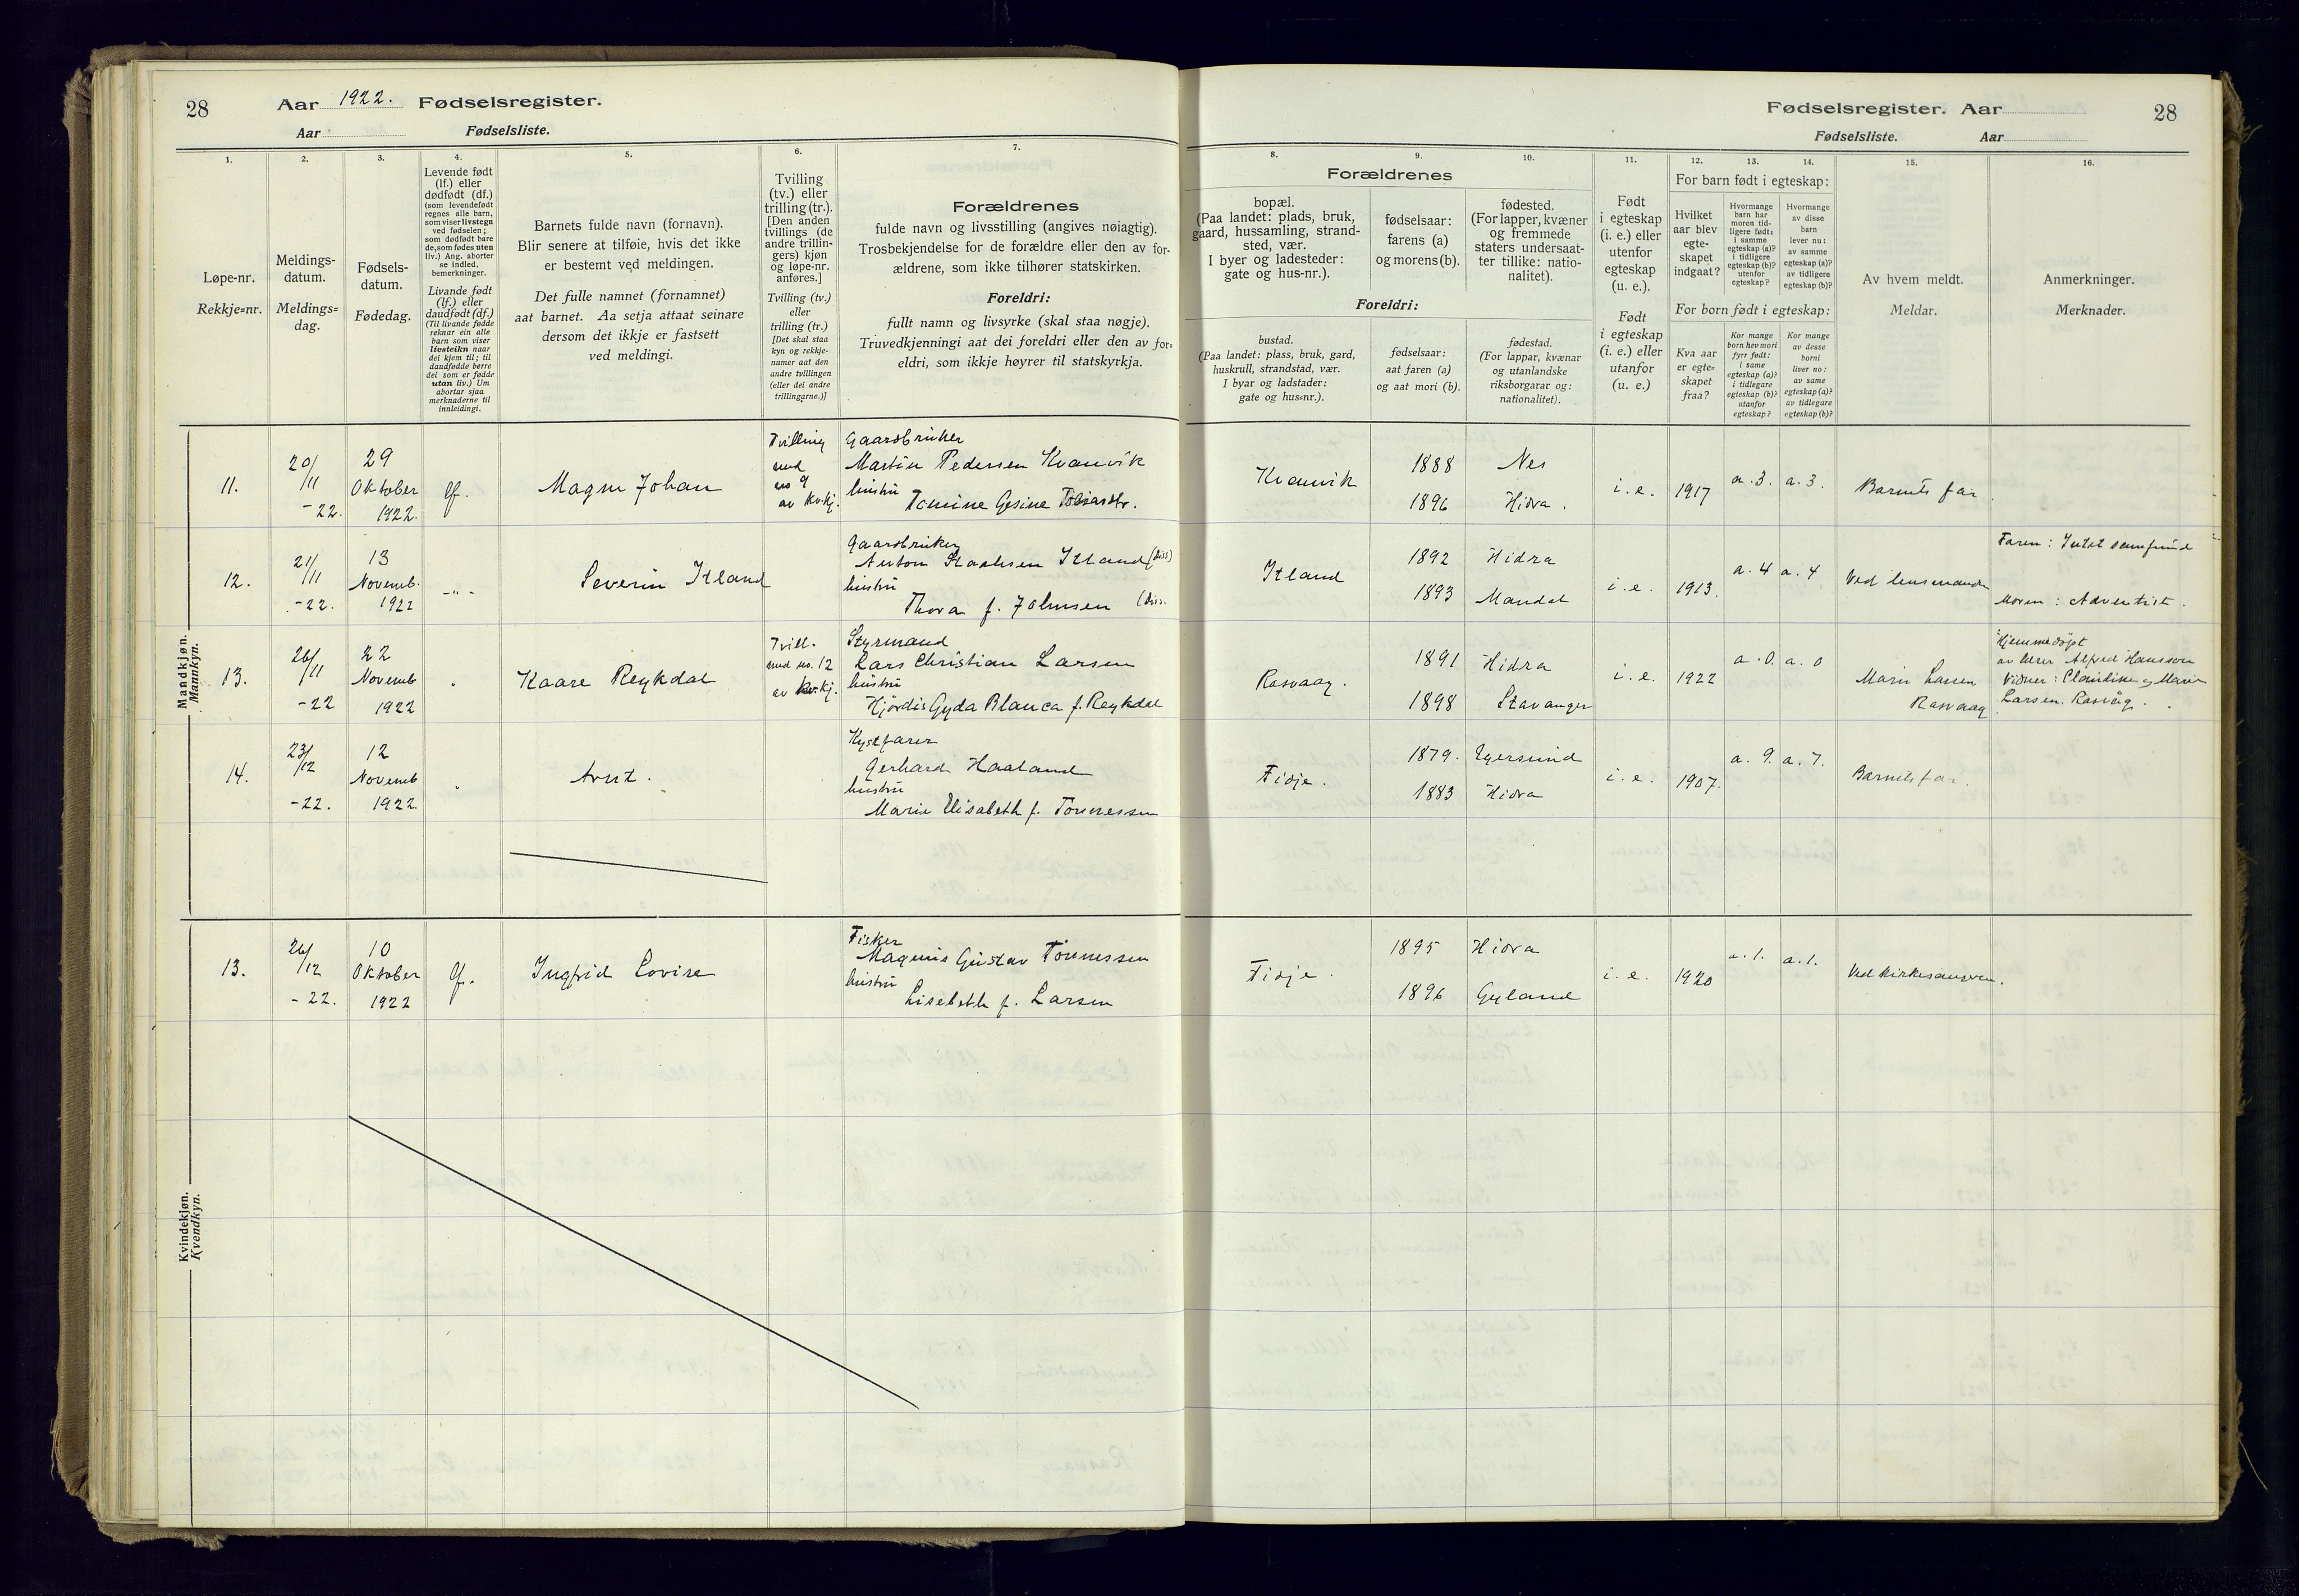 28 Aar 1922. Fødselsregister.
Aar Fødselsliste.
1.
Løpe-nr.
Rekkje=nr.
2.
Meldings-
datum.
Meldings=
dag.
3.
Fødsels-
datum.
Fødedag.
4.
Levende født
(lf.) eller
dødfødt (df.)
(som levendefødt
regnes alle barn,
som viser livstegn
ved fødselen;
som dødfødt bare
de, som fødes uten
liv.) Ang. aborter
se indled.
bemerkninger.
Livande født
(lf.) eller
daudfødt (df.)
(Til livande fødde
reknar ein alle
barn som viser
livsteikn naar
dei kjem til; til
daudfødde berre
dei som er fødde
utan liv.) Um
abortar sjaa
merknaderne til
innleidingi.
5.
Barnets fulde navn (fornavn).
Blir senere at tilføie, hvis det ikke
er bestemt ved meldingen.
Det fulle namnet (fornamnet)
aat barnet. Aa setja attaat seinare
dersom det ikkje er fastsett
ved meldingi.
6.
Tvilling
(tv.) eller
trilling (tr.).
[Den anden
tvillings (de
andre trillin-
gers) kjøn
og løpe-nr.
anføres.]
Tvilling (tv.)
eller
trilling (tr.)
[Det skal staa
kyn og rekkje-
numer aat den
andre tvillingen
(eller dei andre
trillingarne.)]
7.
Forældrenes
fulde navn og livsstilling (angives nøiagtig).
Trosbekjendelse for de forældre eller den av for-
ældrene, som ikke tilhører statskirken.
Foreldri:
fullt namn og livsyrke (skal staa nøgje).
Truvedkjenningi aat dei foreldri eller den av for=
eldri, som ikkje høyrer til statskyrkja.
Mandkjøn.
Mannkyn.
11.
20/11
-22.
29
Oktober
1922.
lf.
Magnus Johan
Tvilling
med
no 9
av kv.kj.
Gaardbruker
Martin Pedersen Kvanvik
hustru
Tomine Gesine Tobiasdtr.
12.
21/11
-22.
13
Novemb.
1922
-"-
Severin Itland
Gaardbruker
Anton Staalesen Itland (diss)
hustru
Thora f. Johnsen (diss.
13.
26/11
-22
22
Novemb
1922
"
Kaare Reykdal
Tvill.
med no. 12
av kv.kj.
Styrmand
Lars Christian Larsen
hustru
Hjørdis Gyda Blanca f. Reykdal
14.
23/12
-22.
12
Novemb
1922
"
Arnt.
Kystfarer
Gerhard Haaland
hustru
Marie Elisabeth f. Tønnessen
Kvindekjøn.
Kvendkyn.
13.
26/12
-22.
10
Oktober
1922
lf.
Ingfrid Lovise
Fisker
Magnus Gustav Tønnessen
hustru
Lisebeth f. Larsen
Fødselsregister. Aar 28
Fødselsliste. Aar
8.
Forældrenes
bopæl.
(Paa landet: plads, bruk,
gaard, hussamling, strand-
sted, vær.
I byer og ladesteder:
gate og hus-nr.).
Foreldri:
bustad.
(Paa landet: plass, bruk, gard,
huskrull, strandstad, vær.
I byar og ladstader:
gate og hus=nr.).
9.
fødselsaar:
farens (a)
og morens (b).
fødselsaar:
aat faren (a)
og aat mori (b).
10.
fødested.
(For lapper, kvæner
og fremmede
staters undersaat-
ter tillike: natio-
nalitet).
fødestad.
(For lappar, kvænar
og utanlandske
riksborgarar og:
nationalitet).
11.
Født
i egteskap
(i. e.) eller
utenfor
egteskap
(u. e.).
Født
i egteskap
(i. e.) eller
utanfor
(u. e.)
12.
For barn født i egteskap:
Hvilket
aar blev
egte-
skapet
indgaat?
For born født i egteskap:
Kva aar
er egte=
skapet
fraa?
13.
Hvormange
barn har
moren tid-
ligere født:
i samme
egteskap (a)?
i tidligere
egteskap (b)?
utenfor
egteskap?
Kor mange
born hev mori
fyrr født:
i same
egteskap (a)?
i tidlegare
egteskap (b)?
utanfor
egteskap?
14.
Hvormange
av disse
barn
lever nu:
av samme
egteskap (a)?
av tidligere
egteskap (b)?
Kor mange
av desse
borni
liver no:
av same
egteskap (a)?
av tidlegare
egteskap (b)?
15.
Av hvem meldt.
Meldar.
16.
Anmerkninger.
Merknader.
Kvanvik
1888
1896
Nes
Hidra.
i. e.
1917
a. 3.
a. 3.
Barnets far.
Itland
1892
1893
Hidra
Mandal
i. e.
1913.
a. 4
a. 4
Ved lensmanden
Faren: Intet samfund
Moren: Adventist.
Rasvaag.
1891
1898
Hidra
Stavanger
i. e.
1922
a. 0.
a. 0
Marie Larsen
Rasvaag
Hjemmedøpt
av lærer Alfred Hansson
Vidner: Claudine og Marie
Larsen. Rasvåg.
Fidje.
1879.
1883
Egersund
Hidra
i. e.
1907.
a. 9.
a. 7.
Barnets far.
Fidje.
1895
1896
Hidra
Gyland
i. e.
1920
a. 1.
a. 1.
Ved kirkesangeren.